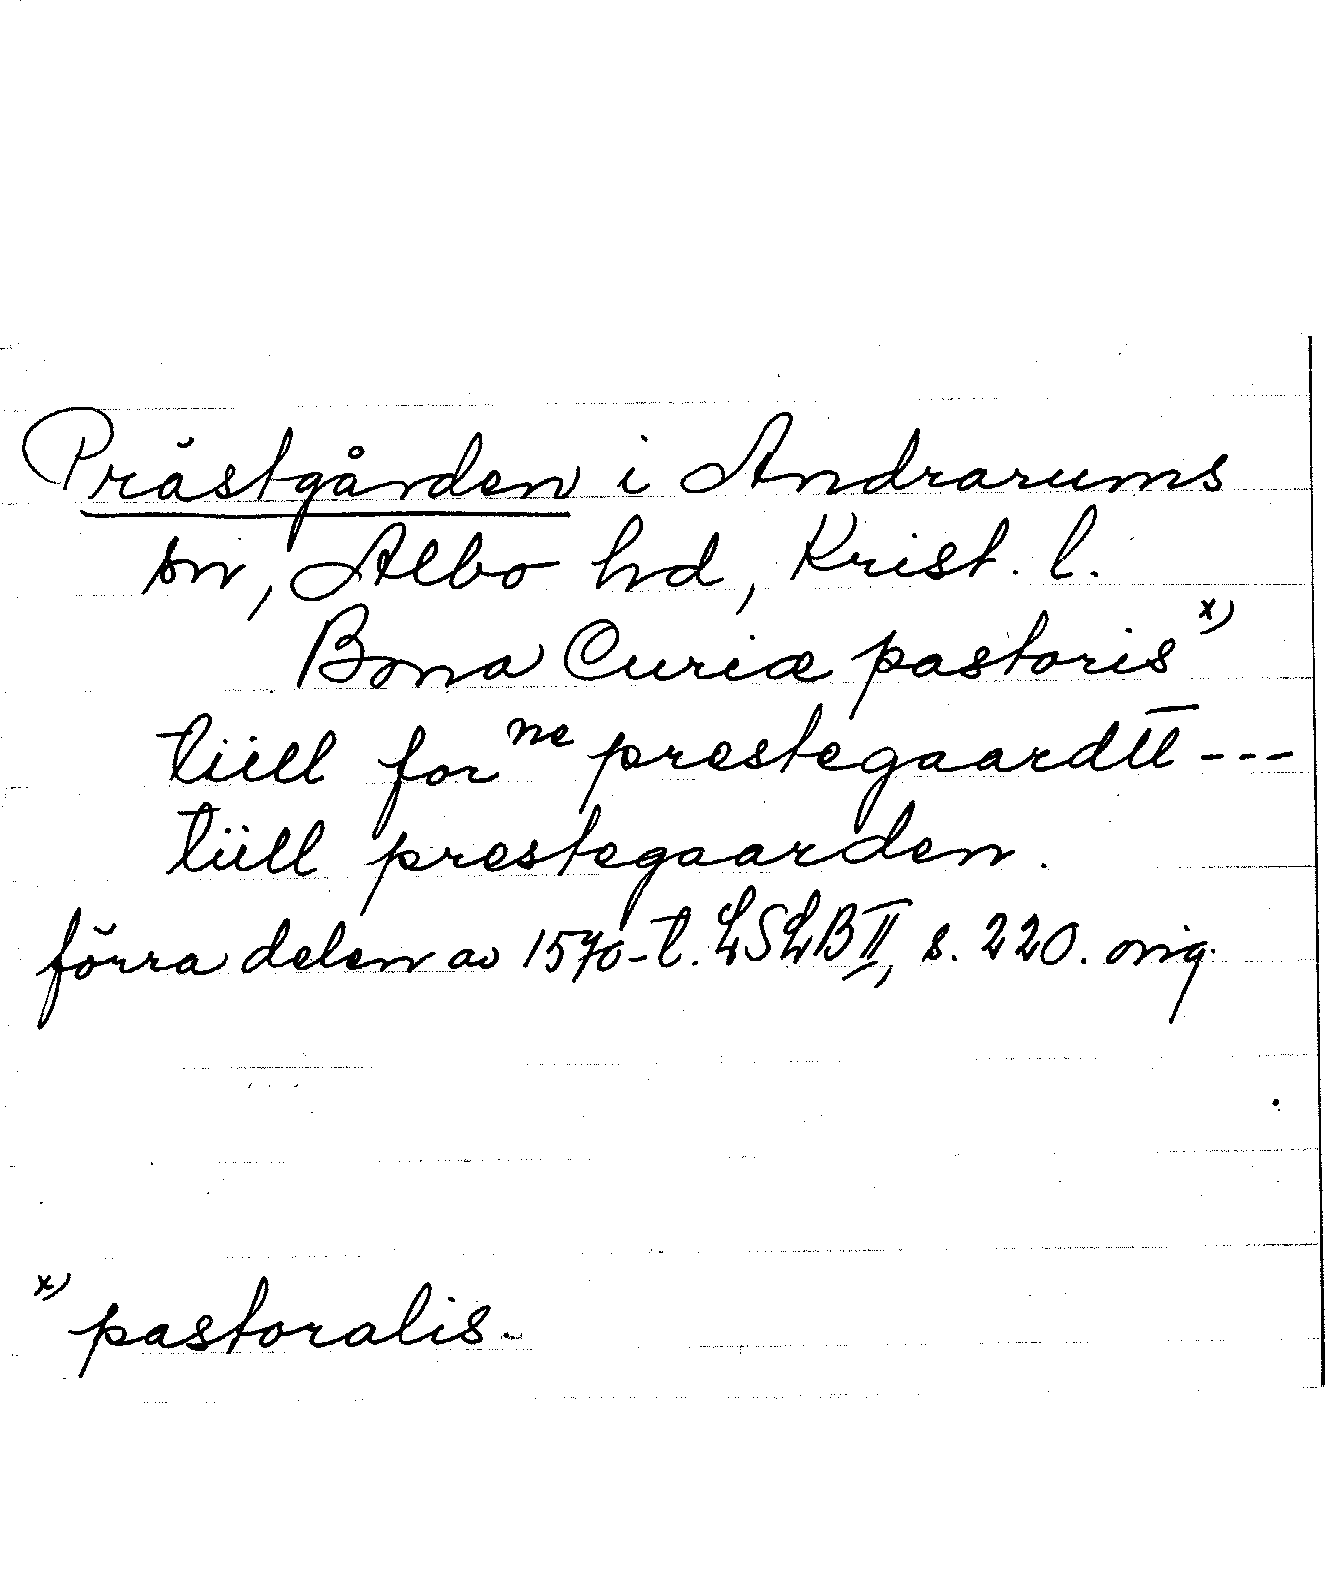 Prästgården i Andrarums
sn, Albo hd, Krist. l.
Bona Curiæ pastoris x)
tiill for ne prestegaardtt ---
tiill prestegaarden.
förra delen av 1570-t. LSLB II, s. 220. orig.
x) pastoralis.